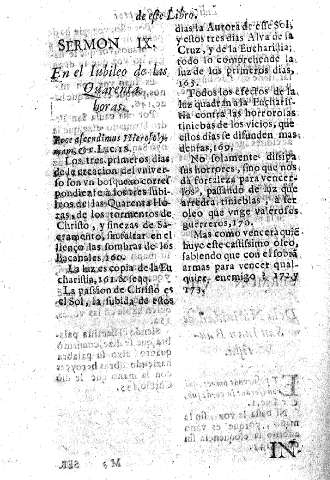 de este Libro.
SERMON IX.
En el Iubileo de las
Quarenta
horas.
Ecce ascendimus Hierosoly-
mam, &c. Luc. 18.
Los tres primeros dias
de la creacion del univer-
so son vn bosquexo corres-
pondiente a los tres Iubi-
leos de las Quarenta Ho-
ras, de los tormentos de
Christo, y finezas de Sa-
cramento, insultar en el
lienço las sombras de los
Bacanales. 160.
La luz es copia de la Eu
charistia, 161. & seqq.
La passion de Christo es
el Sol, la subida de estos
dias la Autora de esse Sol,
y estos tres dias Alva de la
Cruz, y de la Eucharistia;
todo lo comprehende la
luz de los primeros dias,
165.
Todos los efectos de la
luz quadran a la Eucharis-
tia contra las horrorosas
tinieblas de los vicios, que
estos dias se difunden mas
densas, 169.
No solamente dissipa
sus horrores, sino que nos
dà fortaleza para vencer-
los, passando de luz que
arredra tinieblas, à ser
oleo que vnge valerosos
guerreros, 170.
Mas como vencerà quiẽ
huyo este castissimo oleo,
sabiendo que con el sobrã
armas para vencer qual-
quier enemigo, à 172. y
173.
IN-